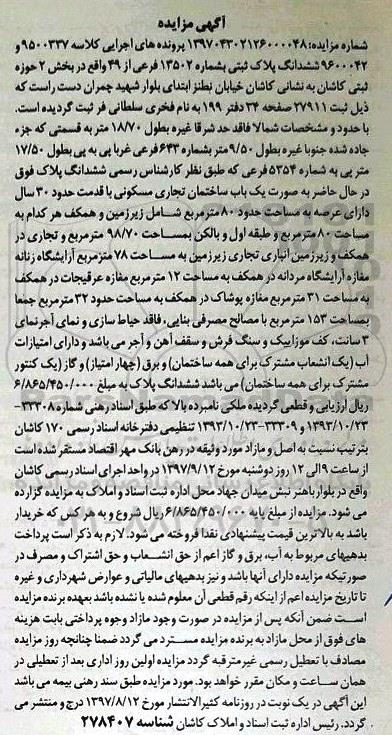 آگهی مزایده
شماره مزایده: ۱۳۹۷۰۴۳۰۲۱۲۶۰۰۰۰۴۸ پرونده های اجرایی کلاسه ۹۵۰۰۳۳۷ و
۹۶۰۰۰۴۲ ششدانگ پلاک ثبتی بشماره ۱۳۵۰۲ فرعی از ۴۹ واقع در بخش ۲ حوزه
ثبتی کاشان به نشانی کاشان خیابان نطنز ابتدای بلوار شهید چمران دست راست که
ذیل ثبت ۲۷۹۱۱ صفحه ۳۴ دفتر ۱۹۹ به نام فخری سلطانی فر ثبت گردیده است.
با حدود و مشخصات شمالا فاقد حد شرقا غیره بطول ۱۸/۷۰ متر به قسمتی که جزء
جاده شده جنوبا غیره بطول ۹/۵۰ متر بشماره ۶۴۳ فرعی غربا پی به پی بطول ۱۷/۵۰
متر پی به شماره ۵۳۵۴ فرعی که طبق نظر کارشناس رسمی ششدانگ پلاک فوق
در حال حاضر به صورت یک باب ساختمان تجاری مسکونی با قدمت حدود ۳۰ سال
دارای عرصه به مساحت حدود ۸۰ مترمربع شامل زیرزمین و همکف هر کدام به
مساحت ۸۰ مترمربع و طبقه اول و بالکن بمساحت ۹۸/۷۰ مترمربع و تجاری در
همکف و زیرزمین انباری تجاری زیرزمین به مساحت ۷۸ مترمربع آرایشگاه زنانه
مغازه آرایشگاه مردانه در همکف به مساحت ۱۲ مترمربع مغازه عرقیجات در همکف
به مساحت ۳۱ مترمربع مغازه پوشاک در همکف به مساحت حدود ۳۲ مترمربع جمعا
بمساحت ۱۵۳ مترمربع با مصالح مصرفی بنایی، فاقد حیاط سازی و نمای آجرنمای
۳ سانت، کف موزاییک و سنگ فرش و سقف آهن و آجر می باشد و دارای امتیازات
آب (یک انشعاب مشترک برای همه ساختمان) و برق (چهار امتیاز) و گاز (یک کنتور
مشترک برای همه ساختمان) می باشد ششدانگ پلاک به مبلغ ۶/۸۶۵/۴۵۰/۰۰۰
ریال ارزیابی و قطعی گردیده ملکی نامبرده بالا که طبق اسناد رهنی شماره ۳۳۳۰۸-
۱۳۹۳/۱۰/۲۳ و ۳۳۳۰۹-۱۳۹۳/۱۰/۲۳ تنظیمی دفترخانه اسناد رسمی ۱۷۰ کاشان
بترتیب نسبت به اصل و مازاد مورد وثیقه در رهن بانک مهر اقتصاد مستقر شده است
از ساعت ۹ الی ۱۲ روز دوشنبه مورخ ۱۳۹۷/۹/۱۲ در واحد اجرای اسناد رسمی کاشان
واقع در بلوار باهنر نبش میدان جهاد محل اداره ثبت اسناد و املاک به مزایده گزارده
می شود. مزایده از مبلغ پایه ۶/۸۶۵/۴۵۰/۰۰۰ ریال شروع و به هر کس که خریدار
باشد به بالاترین قیمت پیشنهادی نقدا فروخته می شود. لازم به ذکر است پرداخت
بدهیهای مربوط به آب، برق و گاز اعم از حق انشعاب و حق اشتراک و مصرف در
صورتیکه مزایده دارای آنها باشد و نیز بدهیهای مالیاتی و عوارض شهرداری و غیره
تا تاریخ مزایده اعم از اینکه رقم قطعی آن معلوم شده یا نشده باشد بعهده برنده مزایده
است ضمن آنکه پس از مزایده در صورت وجود مازاد وجوه پرداختی بابت هزینه های
های فوق از محل مازاد به برنده مزایده مسترد می گردد ضمنا چنانچه روز مزایده
مصادف با تعطیل رسمی غیرمترقبه گردد مزایده اولین روز اداری بعد از تعطیلی در
همان ساعت و مکان مقرر خواهد بود. مورد مزایده طبق سند رهنی بیمه می باشد
این آگهی در یک نوبت در روزنامه کثیرالانتشار مورخ ۱۳۹۷/۸/۱۲ درج و منتشر می
گردد. رئیس اداره ثبت اسناد و املاک کاشان شناسه ۲۷۸۴۰۷